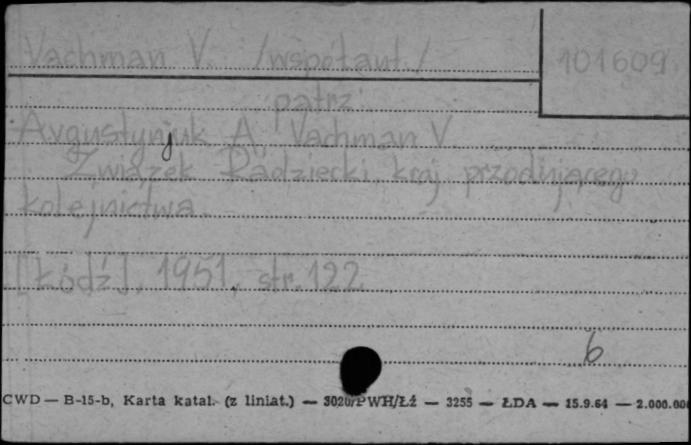 Vachman V. /współaut./ 101609
patrz
Avgustynjuk A, Vachman V.
Związek Radziecki kraj przodującego
kolejnictwa.
[Łódź], 1951, str. 122
6
CWD — B-15-b, Karta katal. (z liniat.) — 3020/PWH/Łź — 3255 — ŁDA — 15.9.64 — 2.000.000